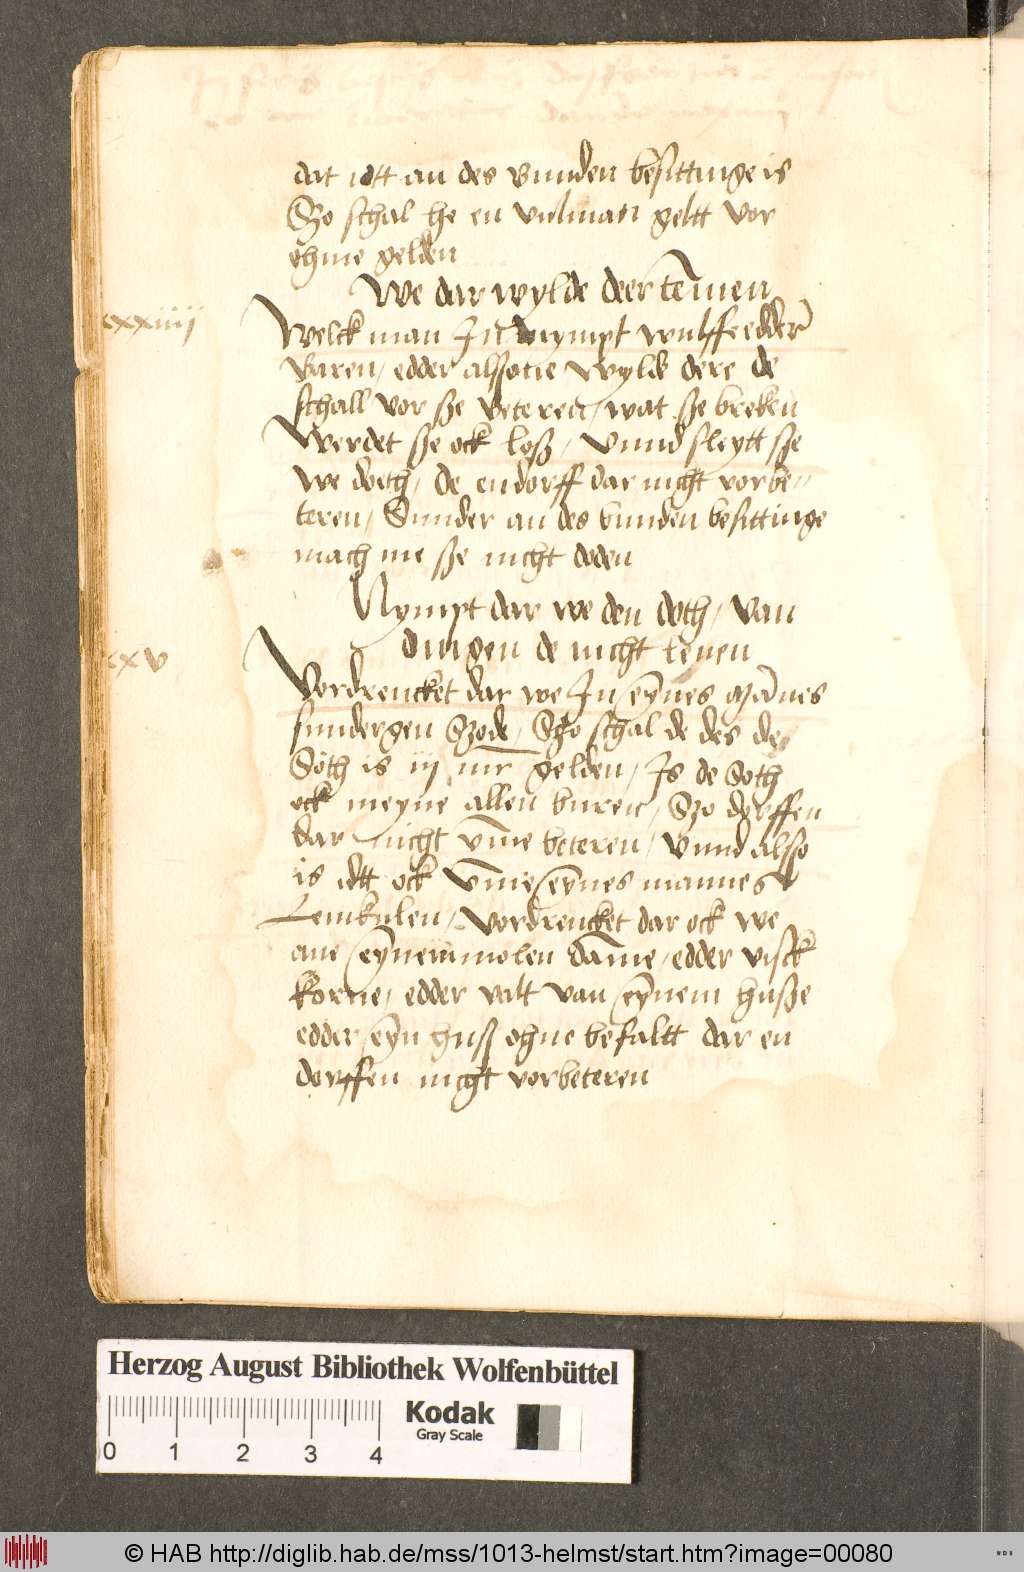 dat idtt an des vunden besittinge is
Szo schal he en vulman geltt vor
ohme gelden
We dar wylde deer temen
xxiiij
Welck man In nympt wulffe edder
Baren, edder alssotie wylde dere de
schall vor sze beteren, wat sze breken
Werdet sze ock loß, Vnnd sleytt sse
we doth, de endorff dar nicht vorbe-
teren, Sunder an des vunden besittinge
mach me sse nicht doden
Nympt dar we den doth, van
dingen de nicht leuen
xxv
Vordrencket dar we In eynes manes
sundergen Szode, Szo schal de des de
Soth is iij mr gelden, Is de Soth
ock meyne allen buren, Szo dorffen
dar nicht vme beteren, Vnnd also
is idtt ock Vme eynes mannes
Lemkulen, Vordrencket dar ock we
ane eynem molen dame, edder visck
korne, edder valt van eynem husze
edder eyn huß ohne befaltt dar en
dorffen nicht vorbeteren
Herzog August Bibliothek Wolfenbüttel
0 1 2 3 4
Kodak
Gray Scale
© HAB http://diglib.hab.de/mss/1013-helmst/start.htm?image=00080